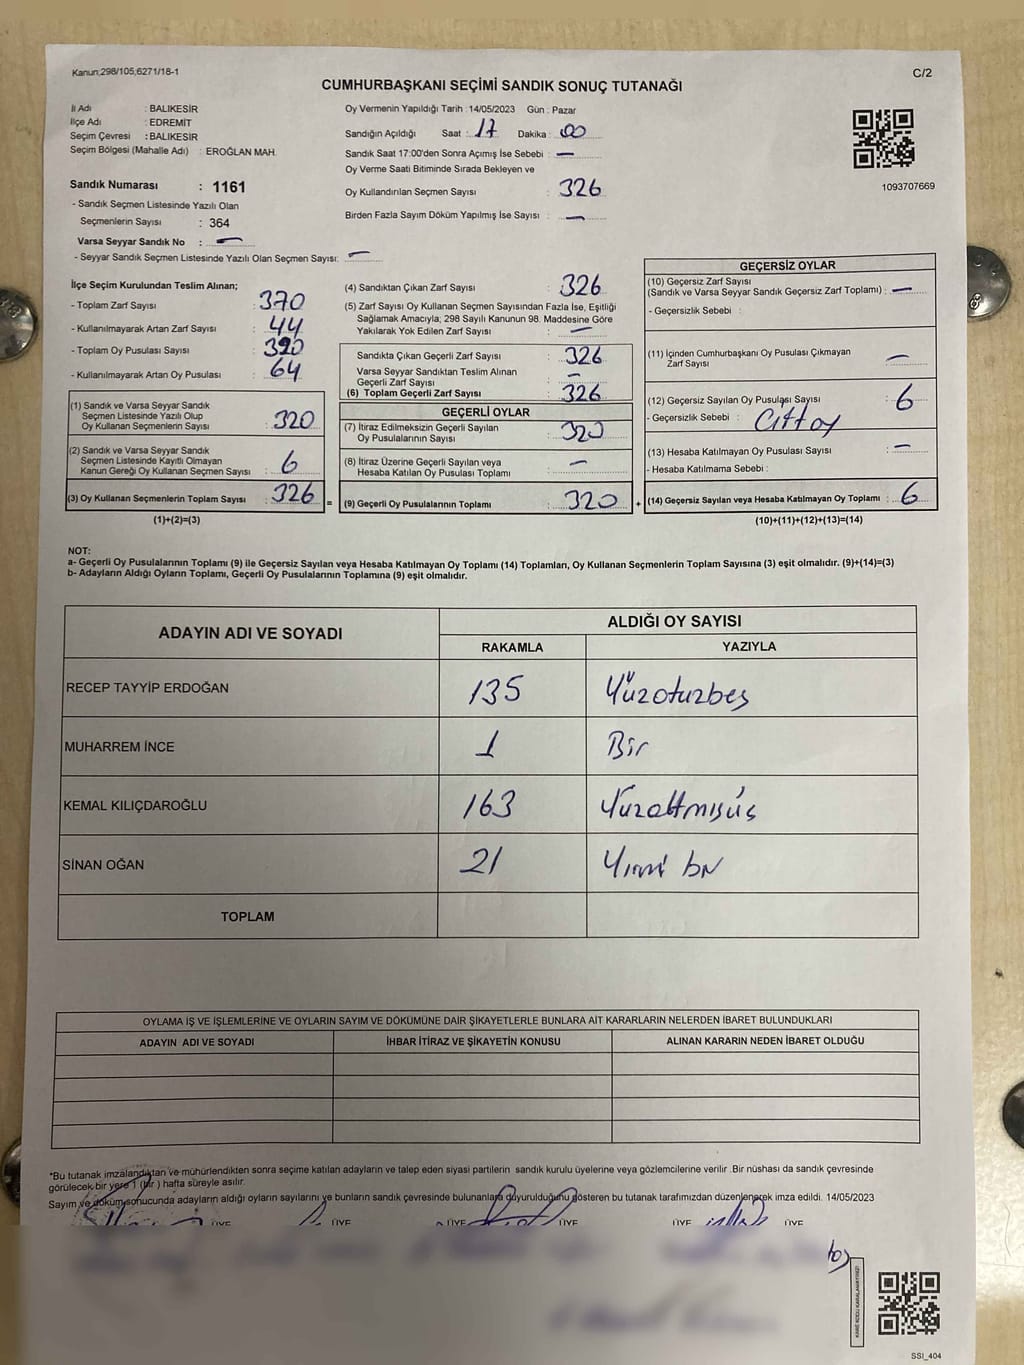 Kanun;298/105;6271/18-1
C/2
CUMHURBAŞKANI SEÇİMİ SANDIK SONUÇ TUTANAĞI
İl Adı : BALIKESİR
İlçe Adı : EDREMİT
Seçim Çevresi : BALIKESİR
Seçim Bölgesi (Mahalle Adı) : EROĞLAN MAH.
Sandık Numarası : 1161
- Sandık Seçmen Listesinde Yazılı Olan
Seçmenlerin Sayısı : 364
Varsa Seyyar Sandık No : —
- Seyyar Sandık Seçmen Listesinde Yazılı Olan Seçmen Sayısı: —
Oy Vermenin Yapıldığı Tarih : 14/05/2023 Gün : Pazar
Sandığın Açıldığı Saat : 17 Dakika : 00
Sandık Saat 17:00'den Sonra Açımış İse Sebebi : —
Oy Verme Saati Bitiminde Sırada Bekleyen ve
Oy Kullandırılan Seçmen Sayısı : 326
Birden Fazla Sayım Döküm Yapılmış İse Sayısı : —
1093707669
İlçe Seçim Kurulundan Teslim Alınan;
- Toplam Zarf Sayısı : 370
- Kullanılmayarak Artan Zarf Sayısı : 44
- Toplam Oy Pusulası Sayısı : 390
- Kullanılmayarak Artan Oy Pusulası : 64
(1) Sandık ve Varsa Seyyar Sandık
Seçmen Listesinde Yazılı Olup
Oy Kullanan Seçmenlerin Sayısı : 320
(2) Sandık ve Varsa Seyyar Sandık
Seçmen Listesinde Kayıtlı Olmayan
Kanun Gereği Oy Kullanan Seçmen Sayısı : 6
(3) Oy Kullanan Seçmenlerin Toplam Sayısı : 326
(1)+(2)=(3)
(4) Sandıktan Çıkan Zarf Sayısı : 326
(5) Zarf Sayısı Oy Kullanan Seçmen Sayısından Fazla İse, Eşitliği
Sağlamak Amacıyla; 298 Sayılı Kanunun 98. Maddesine Göre
Yakılarak Yok Edilen Zarf Sayısı : —
Sandıkta Çıkan Geçerli Zarf Sayısı : 326
Varsa Seyyar Sandıktan Teslim Alınan
Geçerli Zarf Sayısı : —
(6) Toplam Geçerli Zarf Sayısı : 326
GEÇERLİ OYLAR
(7) İtiraz Edilmeksizin Geçerli Sayılan
Oy Pusulalarının Sayısı : 320
(8) İtiraz Üzerine Geçerli Sayılan veya
Hesaba Katılan Oy Pusulası Toplamı : —
= (9) Geçerli Oy Pusulalarının Toplamı : 320 +
GEÇERSİZ OYLAR
(10) Geçersiz Zarf Sayısı
(Sandık ve Varsa Seyyar Sandık Geçersiz Zarf Toplamı) : —
- Geçersizlik Sebebi :
(11) İçinden Cumhurbaşkanı Oy Pusulası Çıkmayan
Zarf Sayısı : —
(12) Geçersiz Sayılan Oy Pusulası Sayısı : 6
- Geçersizlik Sebebi : Çift oy
(13) Hesaba Katılmayan Oy Pusulası Sayısı : —
- Hesaba Katılmama Sebebi :
(14) Geçersiz Sayılan veya Hesaba Katılmayan Oy Toplamı : 6
(10)+(11)+(12)+(13)=(14)
NOT:
a- Geçerli Oy Pusulalarının Toplamı (9) ile Geçersiz Sayılan veya Hesaba Katılmayan Oy Toplamı (14) Toplamları, Oy Kullanan Seçmenlerin Toplam Sayısına (3) eşit olmalıdır. (9)+(14)=(3)
b- Adayların Aldığı Oyların Toplamı, Geçerli Oy Pusulalarının Toplamına (9) eşit olmalıdır.
ADAYIN ADI VE SOYADI
ALDIĞI OY SAYISI
RAKAMLA YAZIYLA
RECEP TAYYİP ERDOĞAN 135 Yüzotuzbeş
MUHARREM İNCE 1 Bir
KEMAL KILIÇDAROĞLU 163 Yüzaltmışüç
SİNAN OĞAN 21 Yirmi bir
TOPLAM
OYLAMA İŞ VE İŞLEMLERİNE VE OYLARIN SAYIM VE DÖKÜMÜNE DAİR ŞİKAYETLERLE BUNLARA AİT KARARLARIN NELERDEN İBARET BULUNDUKLARI
ADAYIN ADI VE SOYADI İHBAR İTİRAZ VE ŞİKAYETİN KONUSU ALINAN KARARIN NEDEN İBARET OLDUĞU
*Bu tutanak imzalandıktan ve mühürlendikten sonra seçime katılan adayların ve talep eden siyasi partilerin sandık kurulu üyelerine veya gözlemcilerine verilir .Bir nüshası da sandık çevresinde
görülecek bir yere 1 (bir ) hafta süreyle asılır.
Sayım ve döküm sonucunda adayların aldığı oyların sayılarını ve bunların sandık çevresinde bulunanlara duyurulduğunu gösteren bu tutanak tarafımızdan düzenlenerek imza edildi. 14/05/2023
ÜYE ÜYE ÜYE ÜYE ÜYE ÜYE
KARE KODU KARALAMAYINIZ!
SSI_404